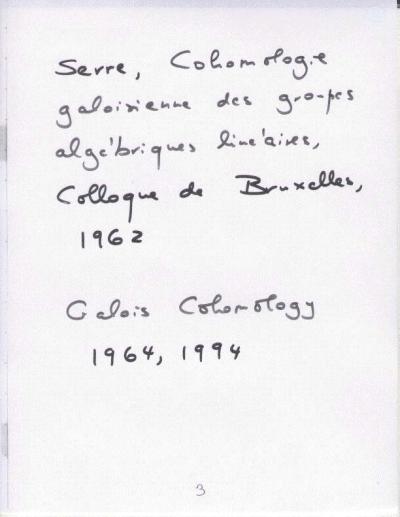 Serre, Cohomologie
galoisienne des groupes
algébriques linéaires,
Colloque de Bruxelles,
1962
Galois Cohomology
1964, 1994
3